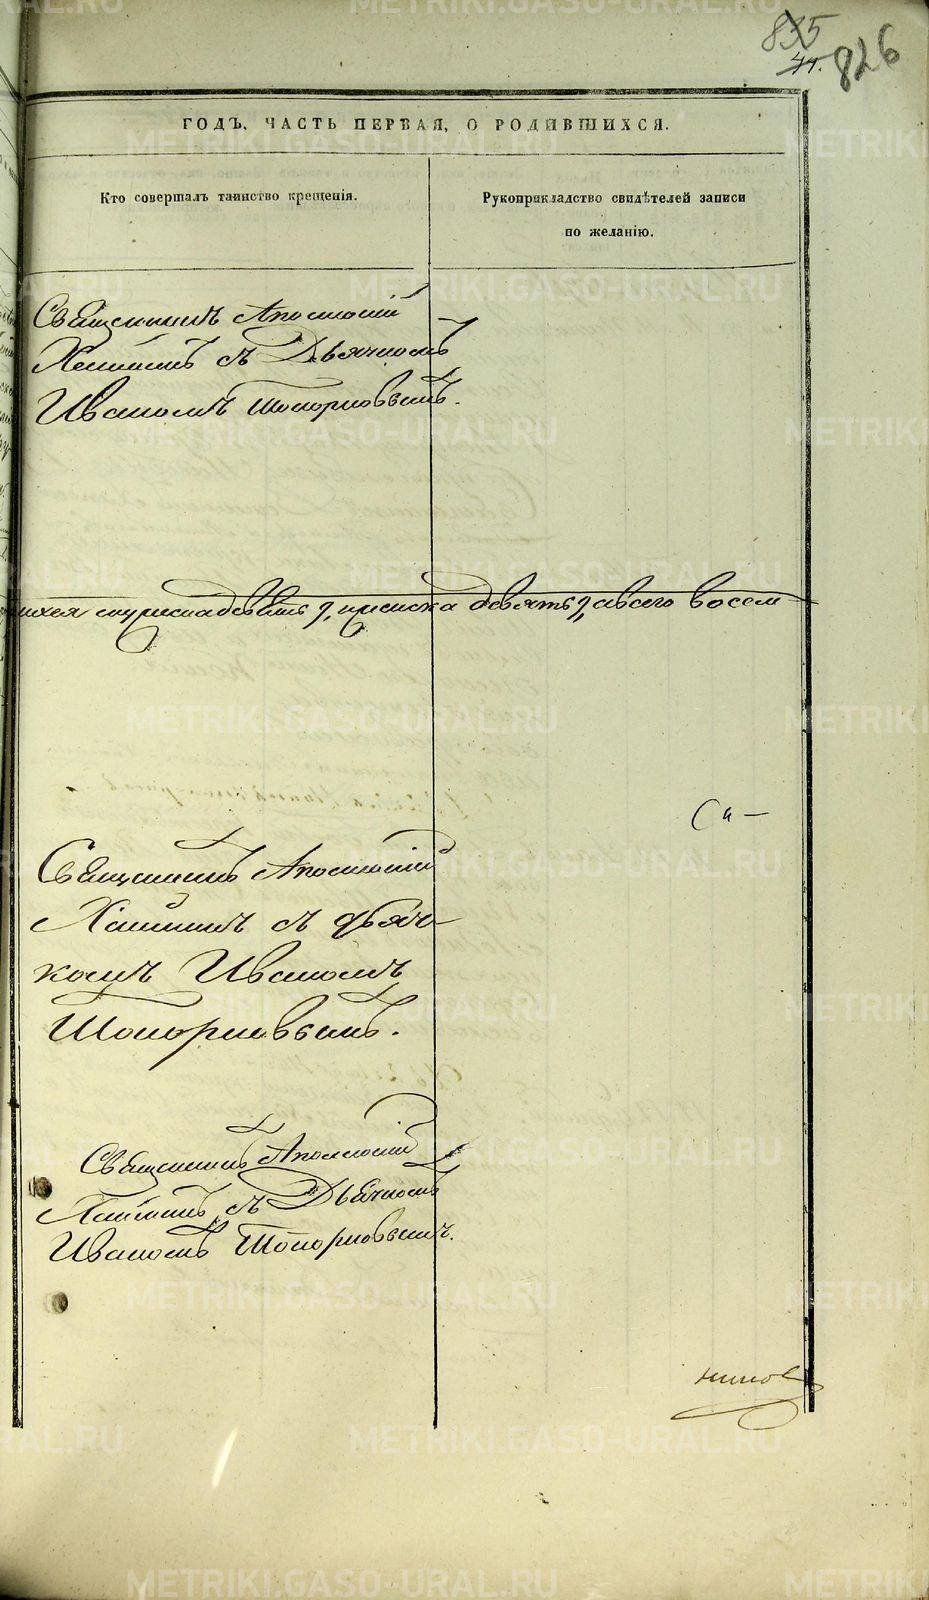 835
44.
826
ГОДЪ, ЧАСТЬ ПЕРВАЯ, О РОДИВШИХСЯ.
Кто совершалъ таинство крещенія.
Рукоприкладство свидѣтелей записи
по желанію.
Священникъ Аполлоній
съ Дьячкомъ
Иваномъ Топорковымъ.
девять 9, а всего восем
Са-
Священникъ Аполлоній
съ дьяч-
комъ Иваномъ
Топорковымъ.
Священникъ Аполлоній
съ Дьячкомъ
Иваномъ Топорковымъ.
METRIKI.GASO-URAL.RU